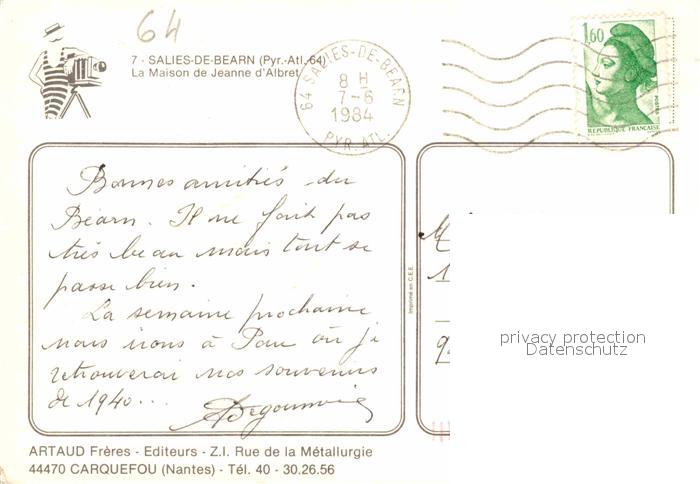 64
7 - SALIES-DE-BEARN (Pyr.-Atl. 64)
La Maison de Jeanne d'Albret
64 SALIES-DE-BEARN
8 H
7-6
1984
PYR. ATL.
1,60
POSTES
REPUBLIQUE FRANÇAISE
Bonnes amitiés du
Béarn. Il ne fait pas
très beau mais tout se
passe bien.
La semaine prochaine
nous irons à Pau où je
retrouverai nos souvenirs
de 1940...
Imprimé en C.E.E.
M
1
9
privacy protection
Datenschutz
ARTAUD Frères - Editeurs - Z.I. Rue de la Métallurgie
44470 CARQUEFOU (Nantes) - Tél. 40 - 30.26.56